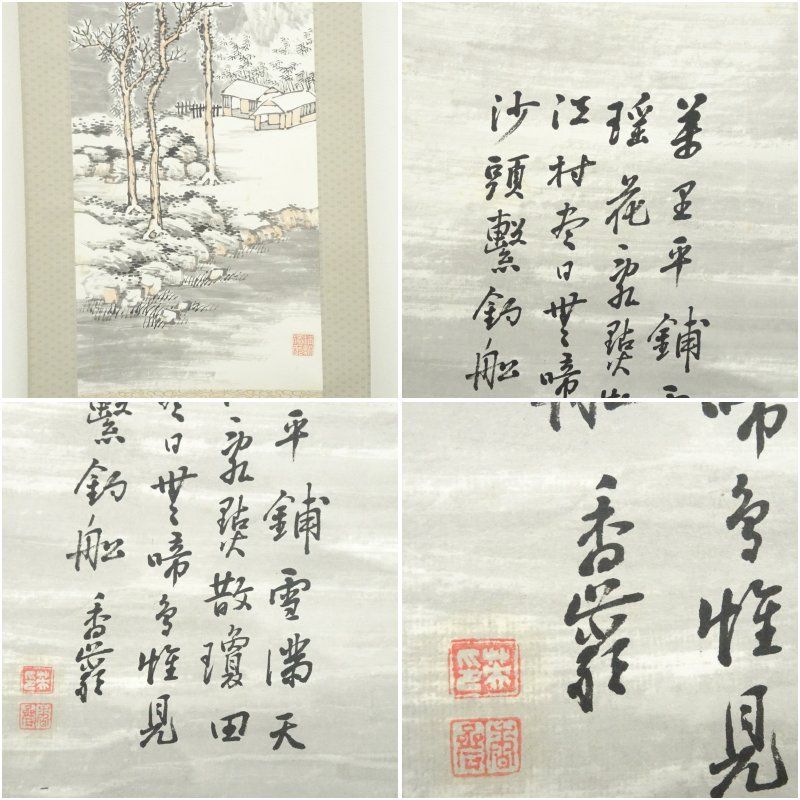 萬里平鋪
瑶花亂點
江村盡日無啼
沙頭繫釣船
平鋪雪滿天
亂點散瓊田
日無啼鳥惟見
繫釣船 香巖
啼鳥惟見
香巖